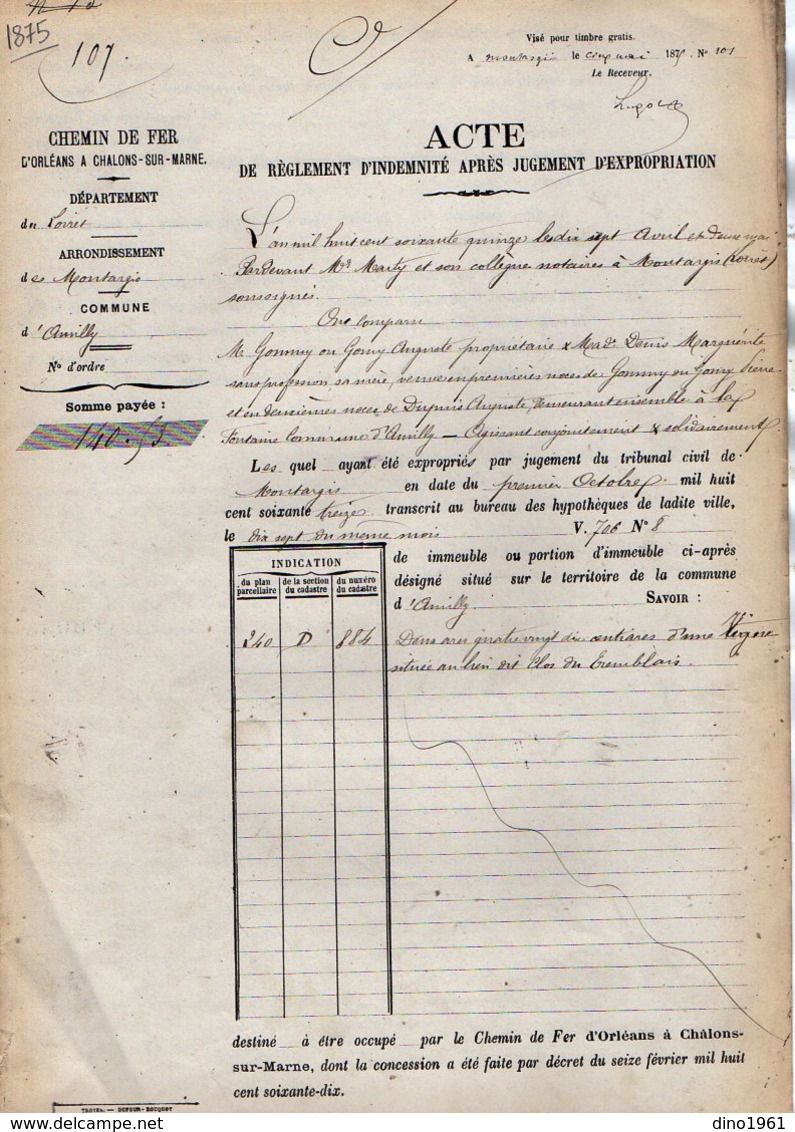 1875
107
Visé pour timbre gratis.
A Montargis le cinq mai 1875 N° 101
Le Receveur.
CHEMIN DE FER
D'ORLÉANS A CHALONS-SUR-MARNE.
DÉPARTEMENT
du Loiret
ARRONDISSEMENT
de Montargis
COMMUNE
d'Amilly
N° d'ordre
Somme payée :
140.53
ACTE
DE RÈGLEMENT D'INDEMNITÉ APRÈS JUGEMENT D'EXPROPRIATION
L'an mil huit cent soixante quinze les dix sept Avril et deux mai
Pardevant Me Marty et son collègue notaires à Montargis (Loiret)
soussignés.
Ont comparu
M. Gommy ou Gomy Auguste propriétaire & Made Denis Marguerite
sans profession sa mère, veuve en premières noces de Gommy ou Gomy Pierre
et en deuxièmes noces de Dupuis Auguste, demeurant ensemble à la
Fontaine Commune d'Amilly — Agissant conjointement & solidairement
Lesquel ayant été expropriés par jugement du tribunal civil de
Montargis en date du premier Octobre mil huit
cent soixante treize transcrit au bureau des hypothèques de ladite ville,
le dix sept du même mois V. 706 N° 8
de immeuble ou portion d'immeuble ci-après
désigné situé sur le territoire de la commune
d'Amilly SAVOIR :
INDICATION
du plan parcellaire de la section du cadastre du numéro du cadastre
240 D 884 Deux ares quatre vingt dix centiares d'une
située au lieu dit Clos du Tremblais.
destiné à être occupé par le Chemin de Fer d'Orléans à Châlons-
sur-Marne, dont la concession a été faite par décret du seize février mil huit
cent soixante-dix.
TROYES. — DUFOUR-BOUQUOT
delcampe.net
dino1961